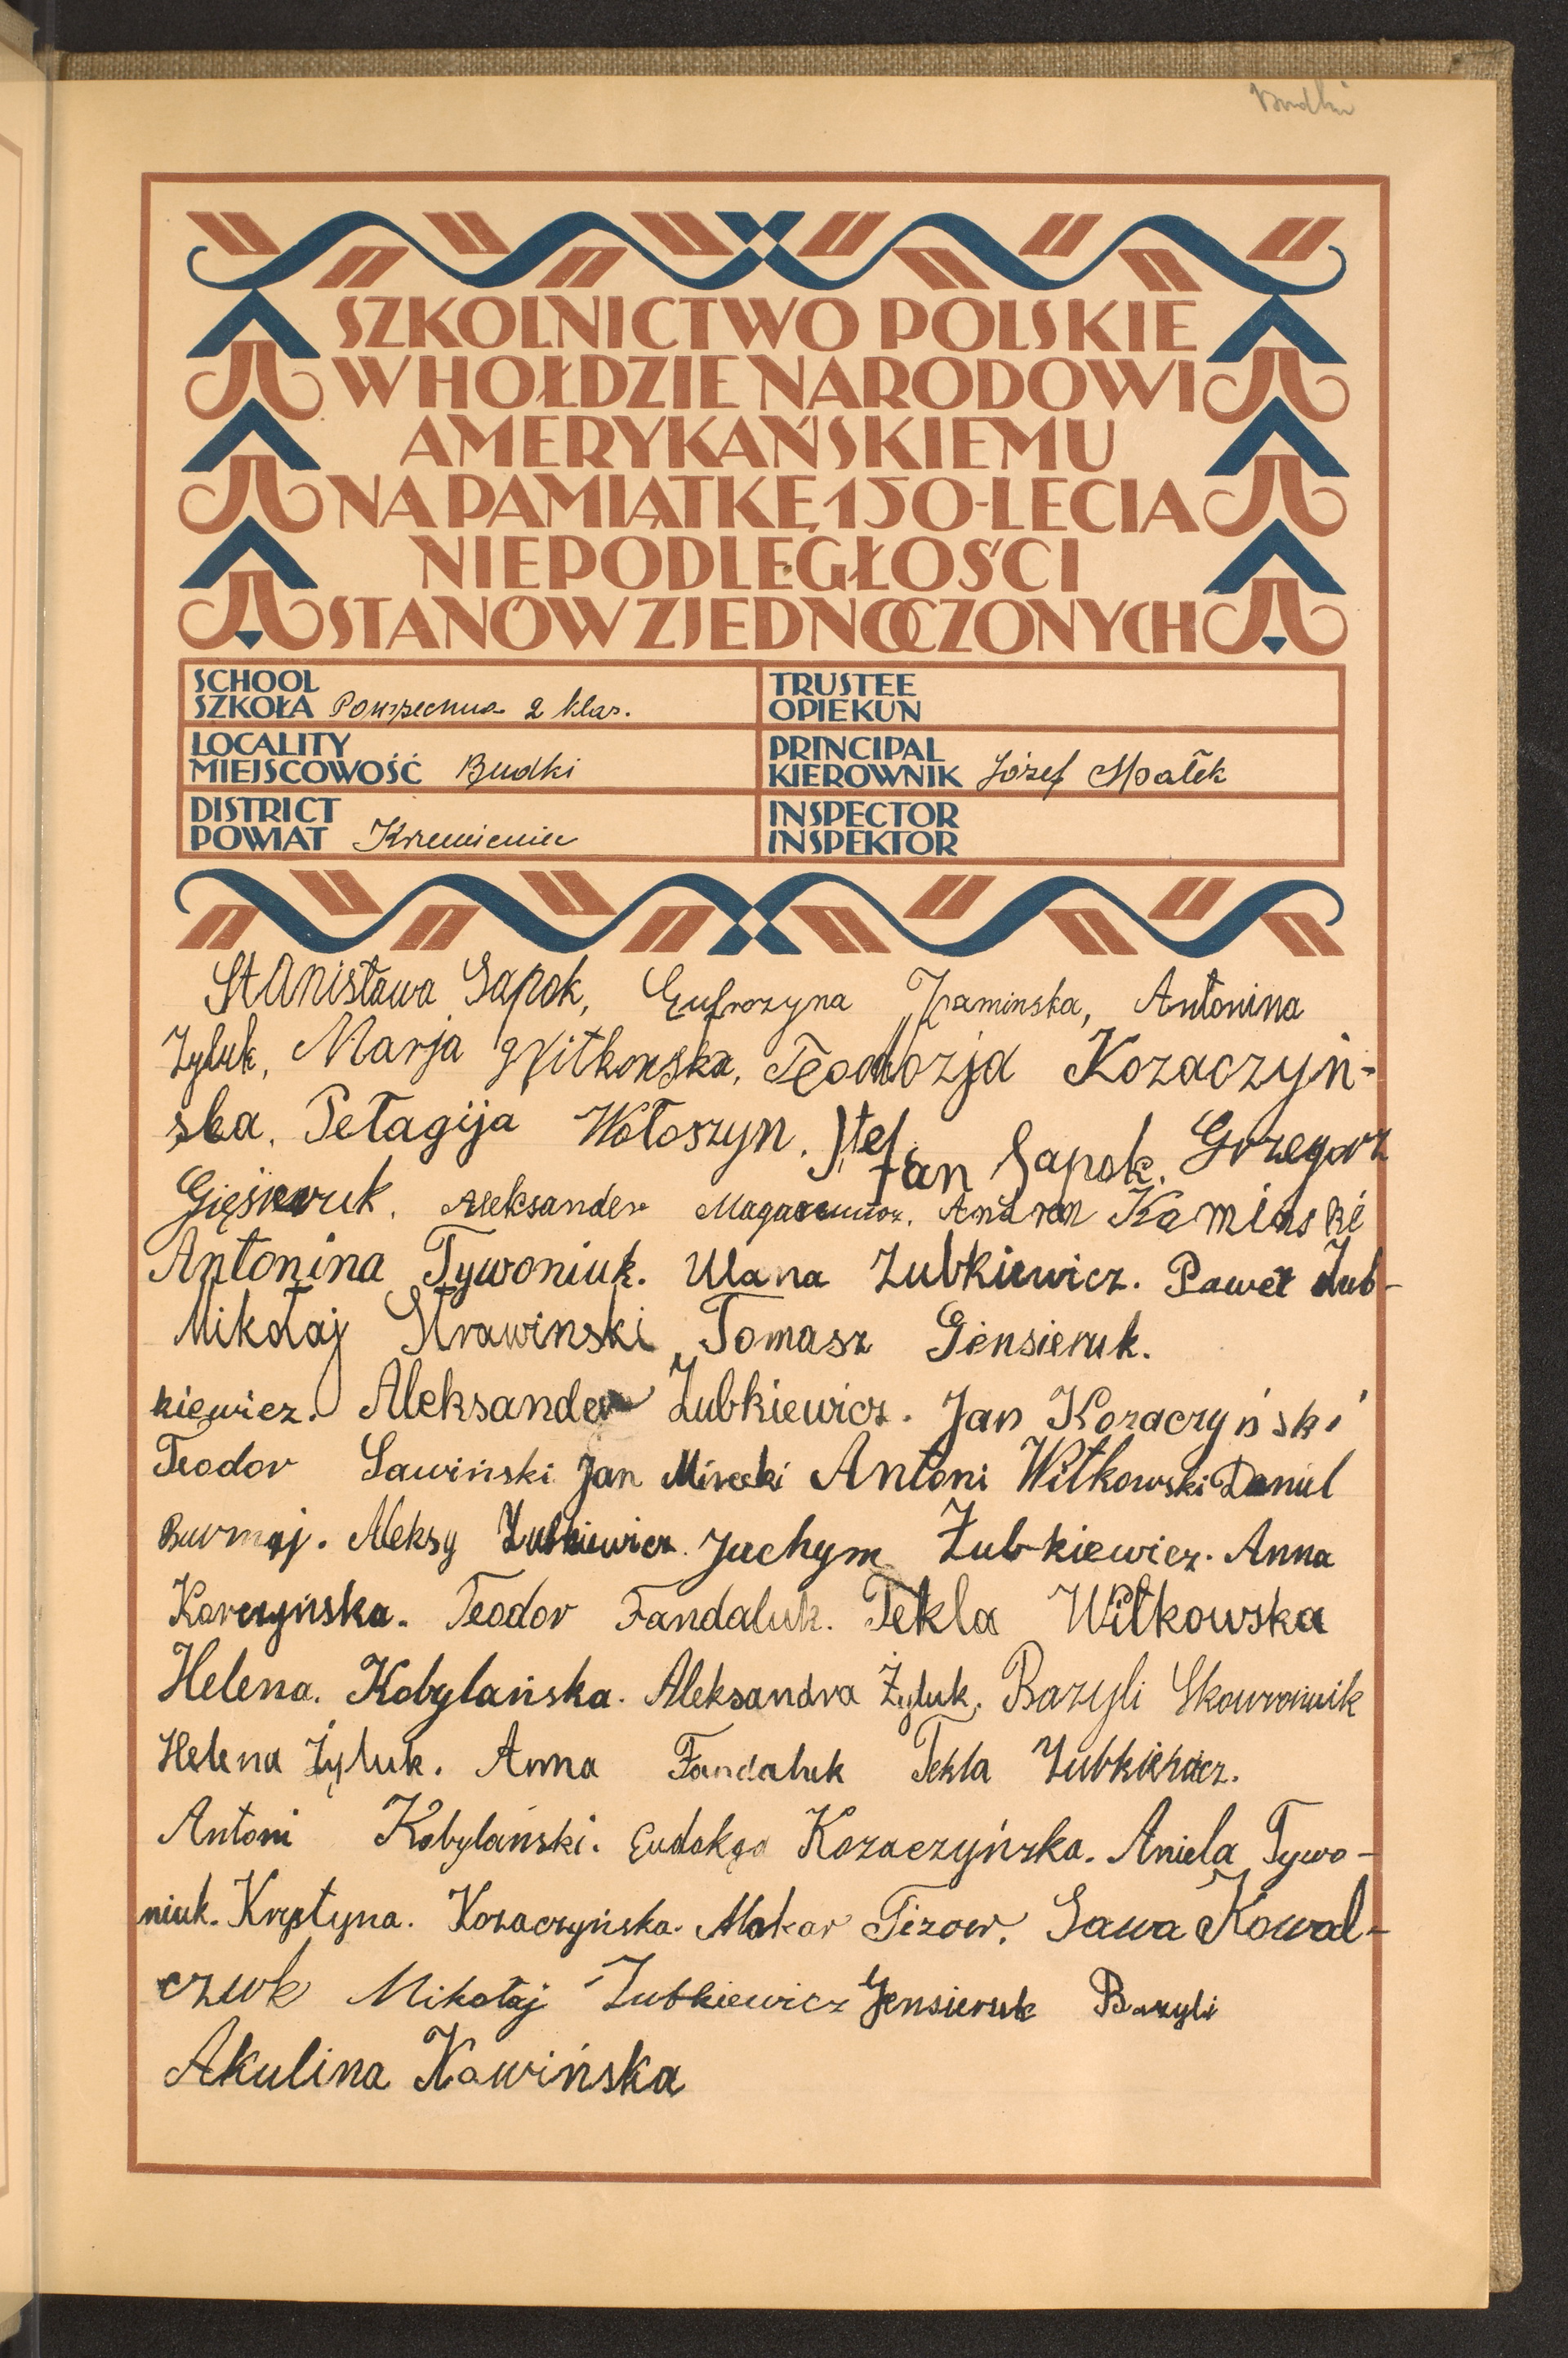 Budki
SZKOLNICTWO POLSKIE
W HOŁDZIE NARODOWI
AMERYKAŃSKIEMU
NA PAMIĄTKĘ 150-LECIA
NIEPODLEGŁOŚCI
STANÓW ZJEDNOCZONYCH
SCHOOL
SZKOŁA Powszechna 2 klas.
TRUSTEE
OPIEKUN
LOCALITY
MIEJSCOWOŚĆ Budki
PRINCIPAL
KIEROWNIK Józef Małek
DISTRICT
POWIAT Krzemieniec
INSPECTOR
INSPEKTOR
Stanisława Sapok, Eufrozyna Kaminska, Antonina
Żyluk, Marja Witkowska, Teodozja Kozaczyń-
ska. Pełagija Wołoszyn. Stefan Sapok. Grzegorz
Gięsieruk. Aleksander Andren Kaminski
Antonina Tywoniuk. Ulana Zubkiewicz. Paweł Zub-
Mikołaj Strawinski Tomasz Giensieruk.
kiewicz. Aleksander Żubkiewicz. Jan Kozaczyński
Teodor Sawiński Jan Mirecki Antoni Witkowski Daniel
Burmaj. Aleksy Zubkiewicz. Jachym Żubkiewicz. Anna
Korczyńska. Teodor Fandaluk. Tekla Witkowska
Helena. Kobylańska. Aleksandra Żyluk. Bazyli Skowroniuk
Helena Żyluk. Anna Fandaluk Tekla Zubkiewicz.
Antoni Kobylański. Kozaczyńska. Aniela Tywo-
niuk. Krystyna. Kozaczyńska. Makar Tizow. Sawa Kowal-
czuk Mikołaj Zubkiewicz Gensieruk Bazyli
Akulina Kawińska